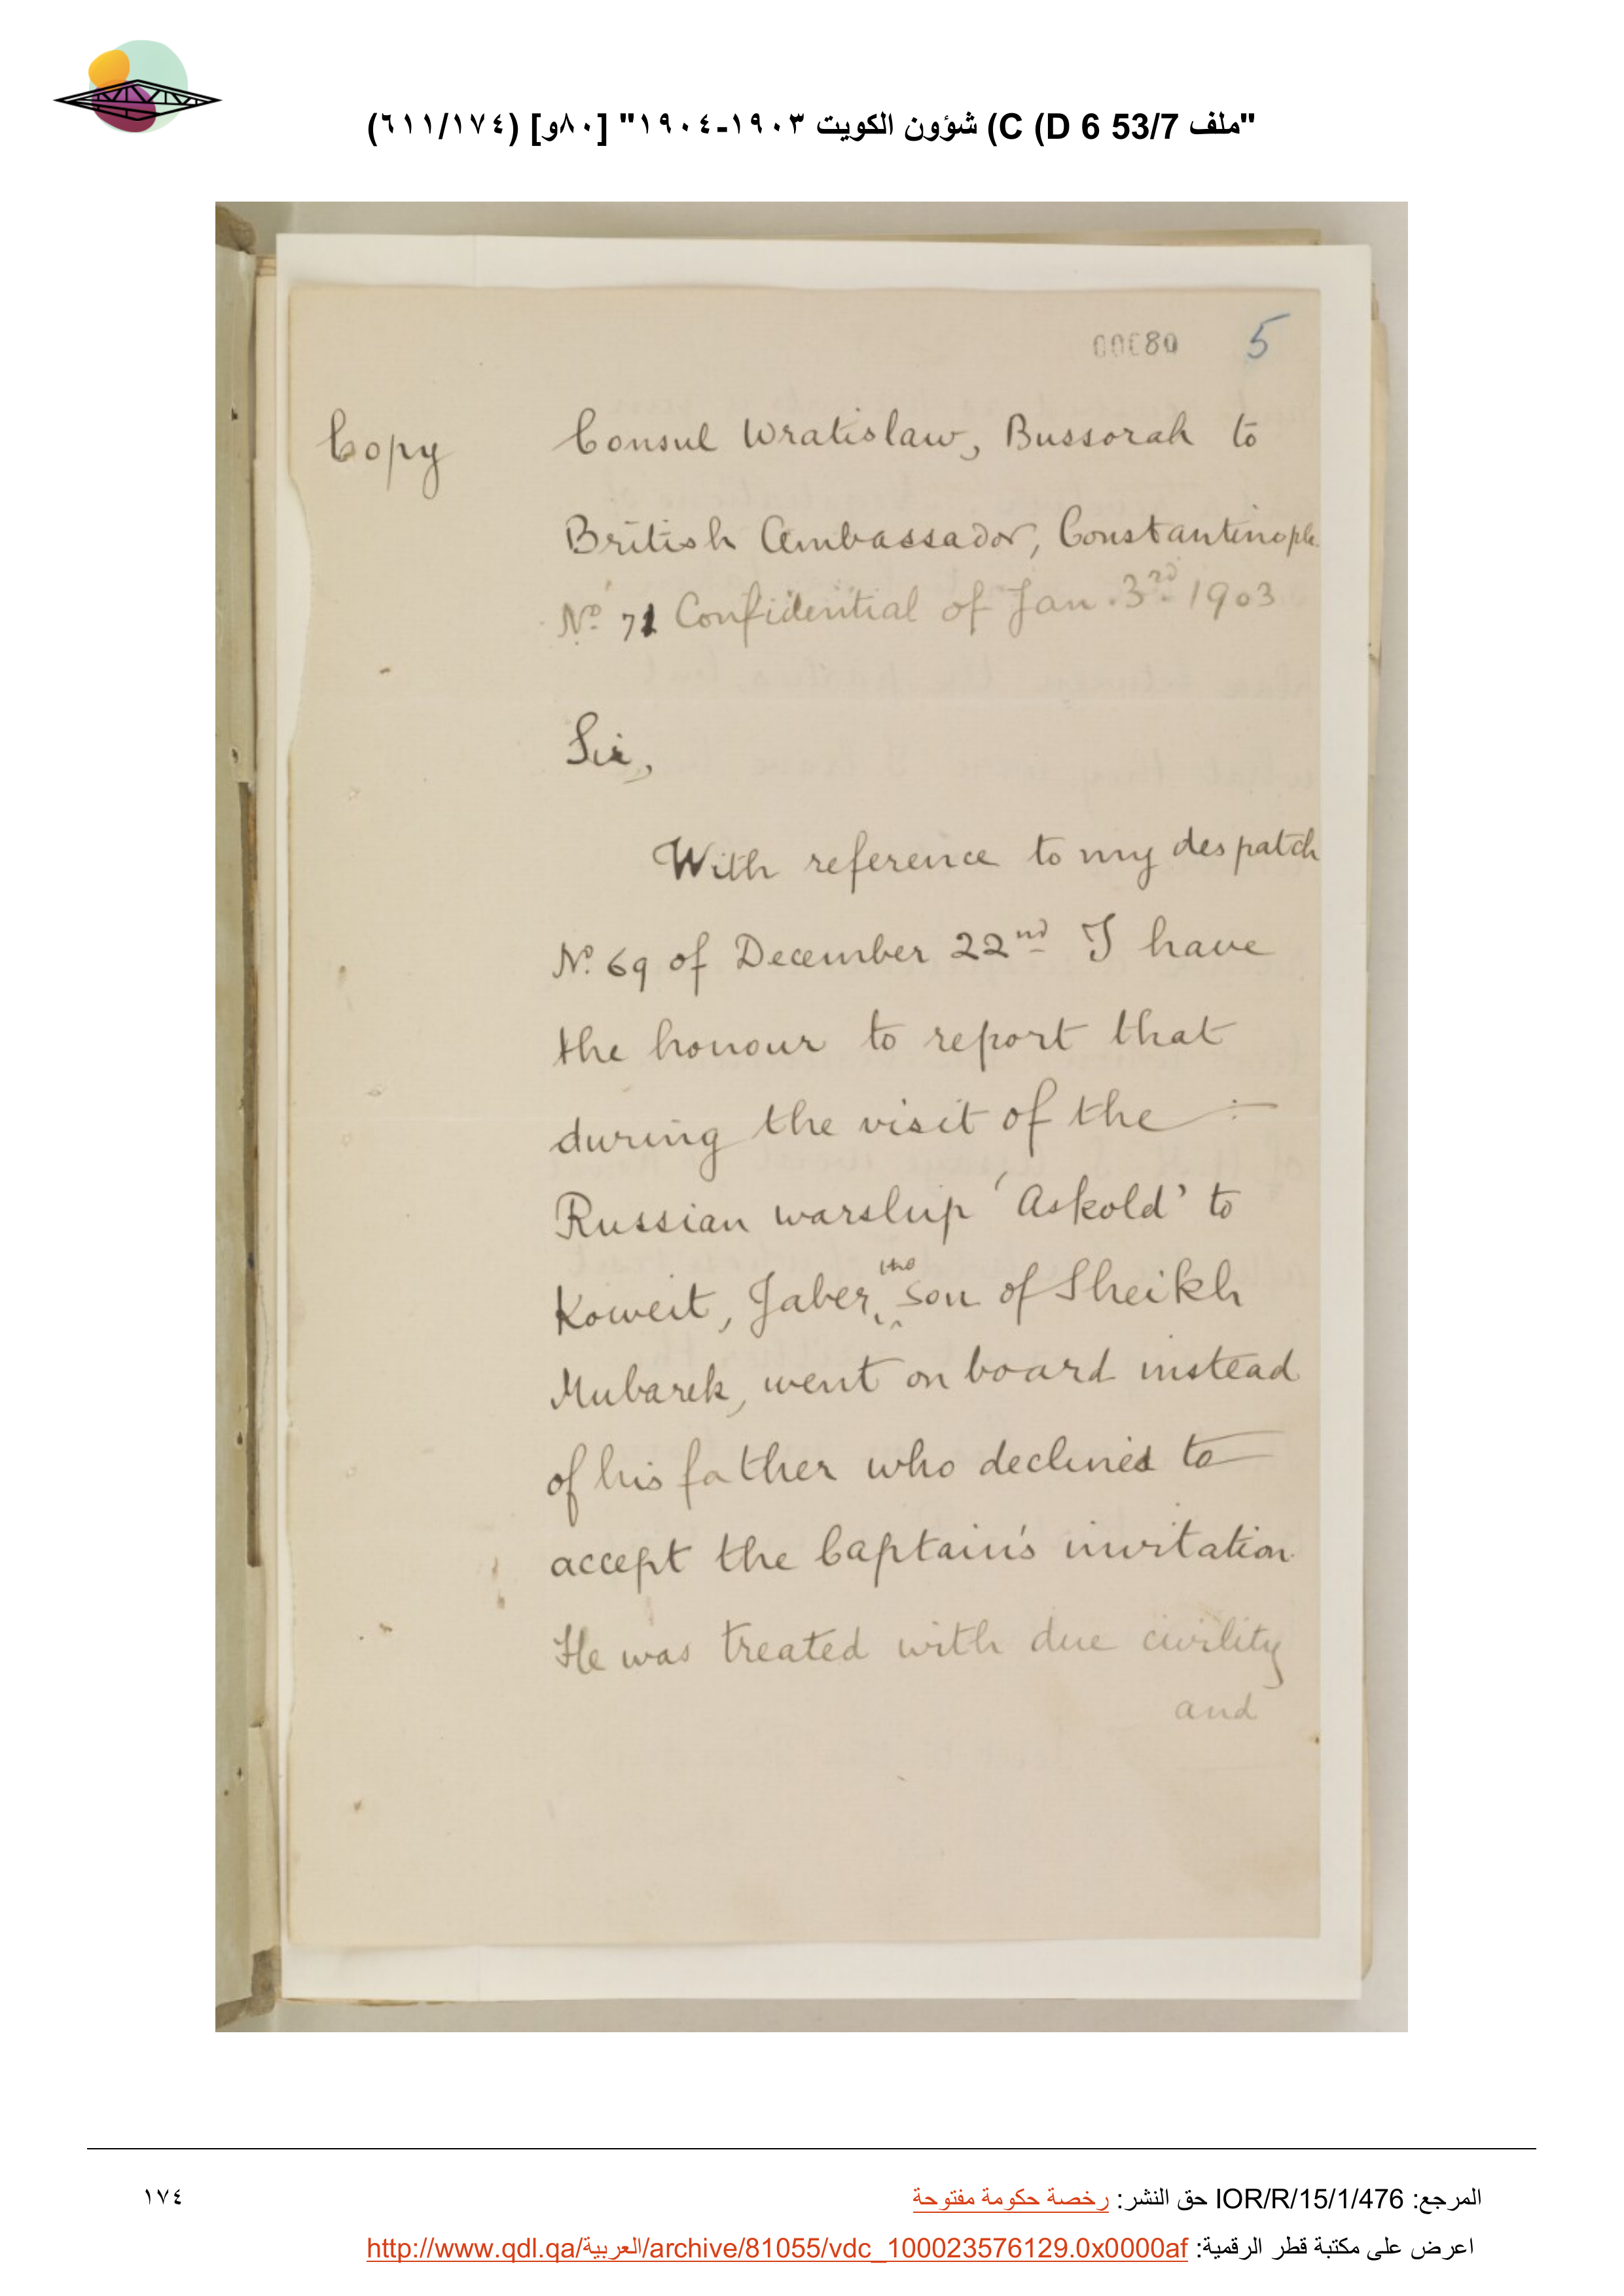 "ملف 53/7 D 6) C) شؤون الكويت ١٩٠٣-١٩٠٤" [٨٠و] (٦١١/١٧٤)
00080 5
Copy
Consul Wratislaw, Bussorah to
British Ambassador, Constantinople.
No. 71 Confidential of Jan. 3rd 1903
Sir,
With reference to my despatch
No. 69 of December 22nd I have
the honour to report that
during the visit of the
Russian warship 'Askold' to
Koweit, Jaber, the son of Sheikh
Mubarek, went on board instead
of his father who declined to
accept the Captain's invitation.
He was treated with due civility
and
المرجع: IOR/R/15/1/476 حق النشر: رخصة حكومة مفتوحة
١٧٤
اعرض على مكتبة قطر الرقمية: http://www.qdl.qa/العربية/archive/81055/vdc_100023576129.0x0000af